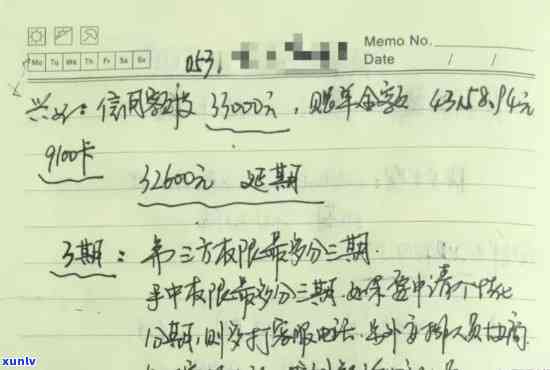 Memo No.
Mo Tu We Th Fr Sa Su
Date / /
053.
兴业：信用额度 33000元，账单金额 43158.94元
9100卡
32600元 延期
3期：第三方权限最多分三期.
手中权限最多分三期.如保室申请个性化
分期,则拨打客服电话,另外安排人员协商.
xuntv